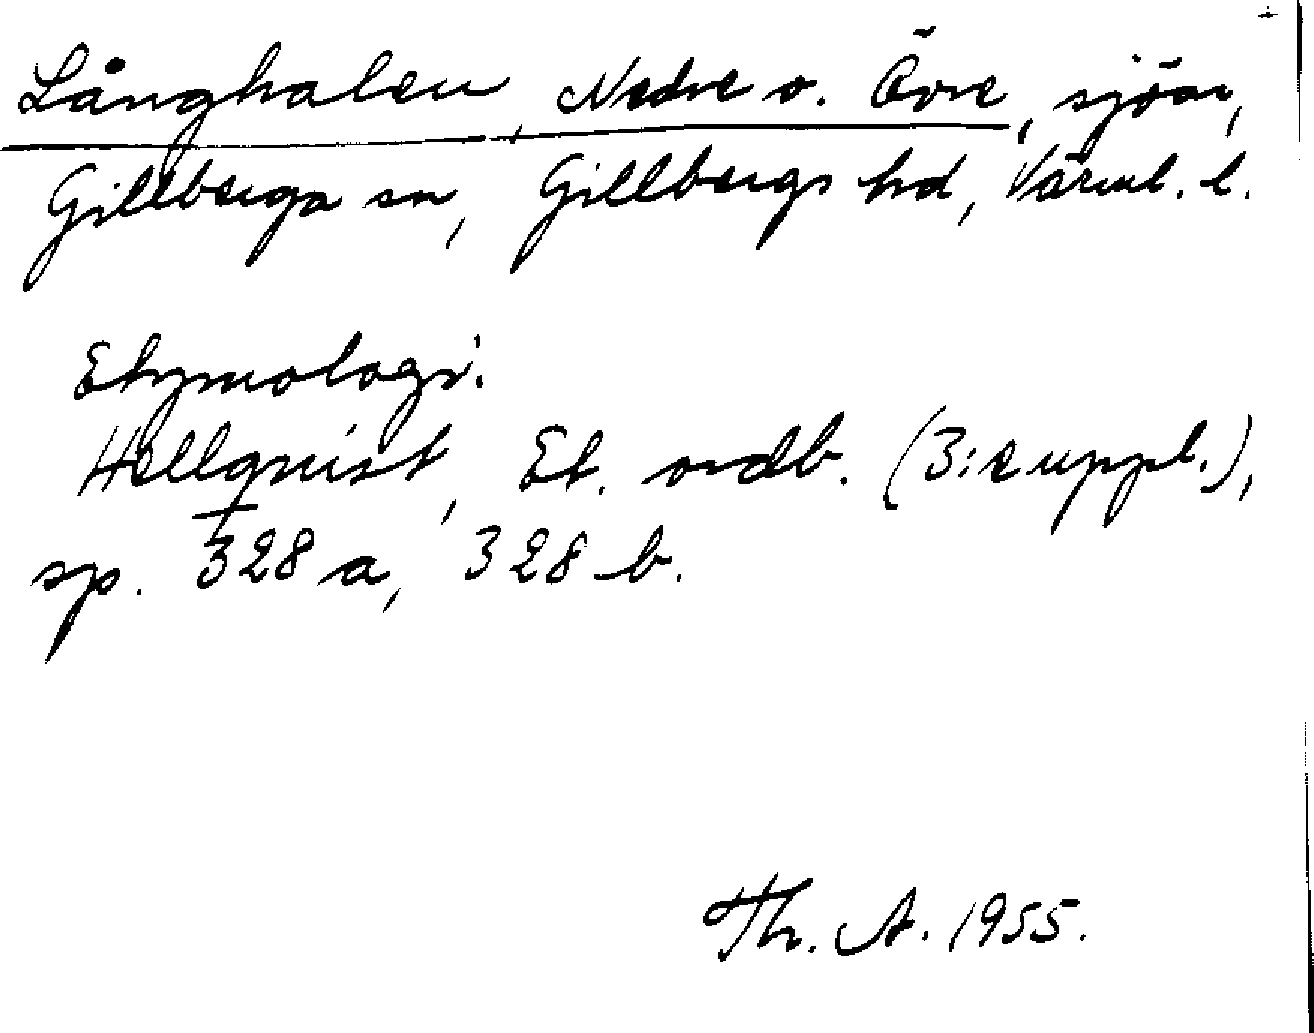 Långhalen, Nedre o. Övre, sjöar,
Gillberga sn, Gillbergs hd, Värml. l.
Etymologi:
Hellquist, Et. ordb. (3:e uppl.),
sp. 328 a, 328 b.
Th. A. 1955.